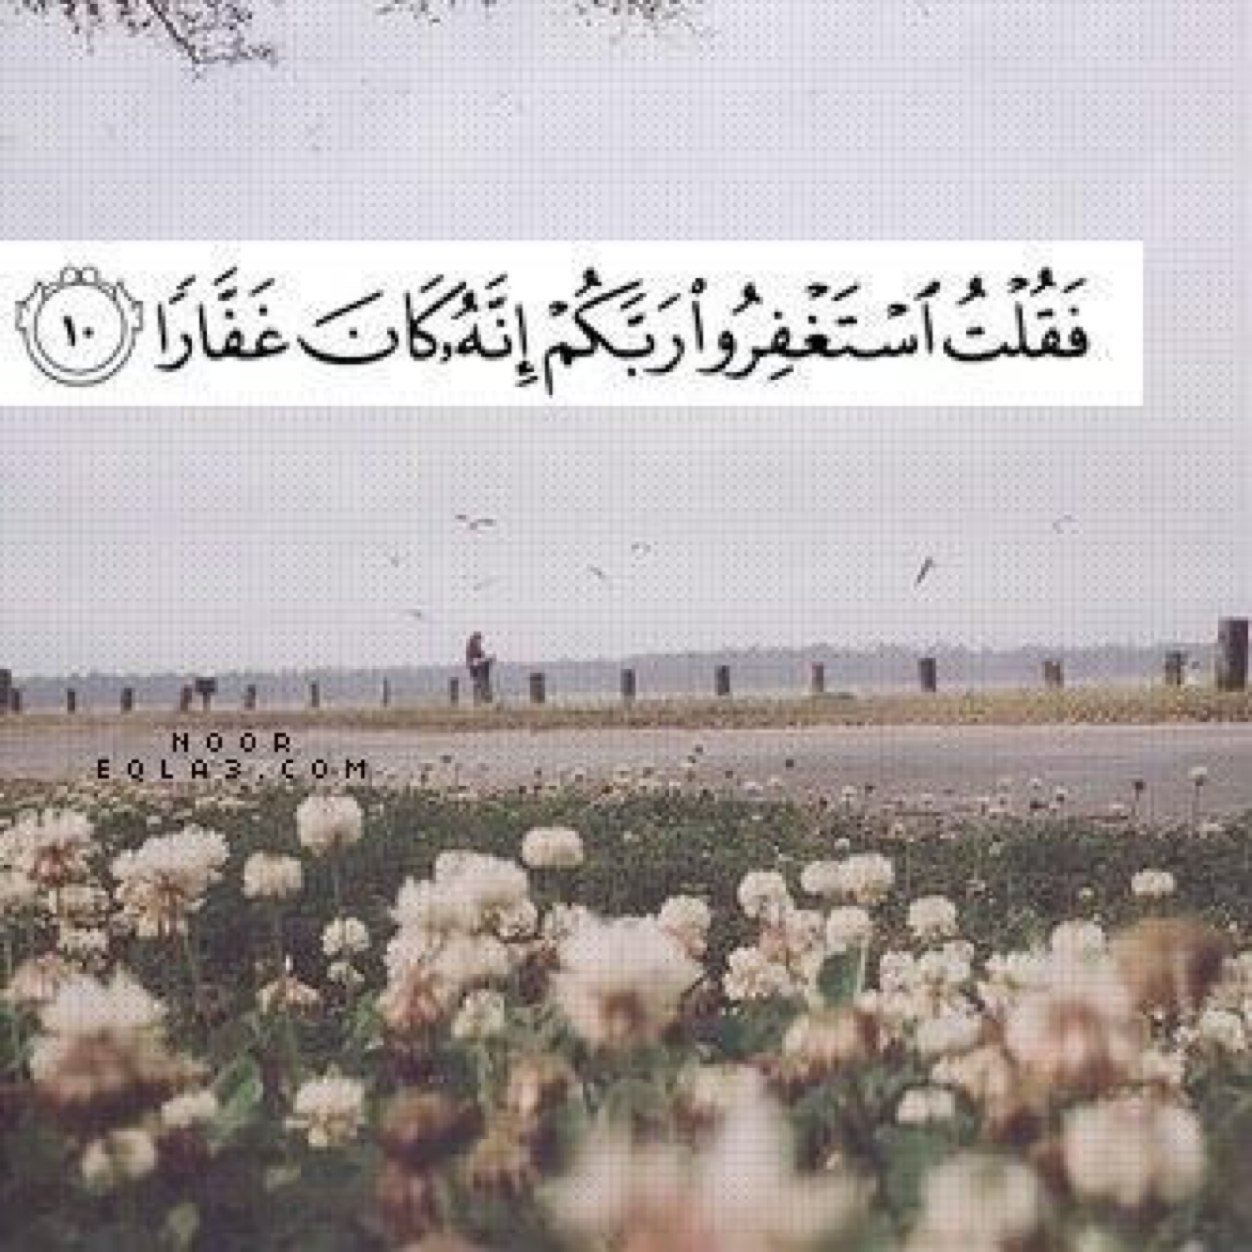 فَقُلْتُ ٱسْتَغْفِرُوا۟ رَبَّكُمْ إِنَّهُۥ كَانَ غَفَّارًا ١٠
NOOR
EQLA3.COM